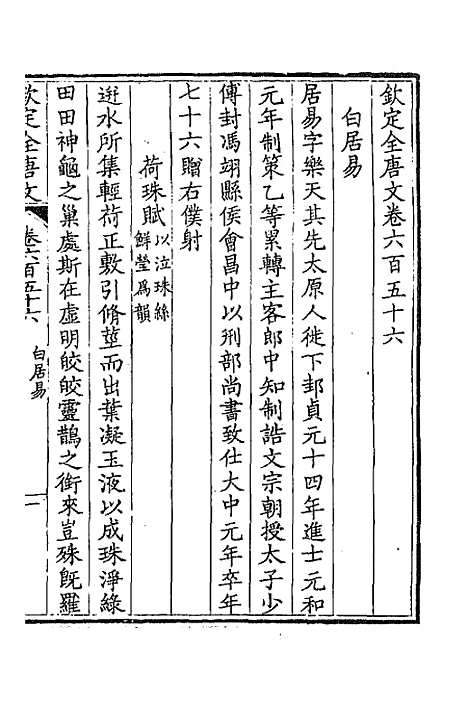 欽定全唐文卷六百五十六
白居易
居易字樂天其先太原人徙下邽貞元十四年進士元和
元年制策乙等累轉主客郎中知制誥文宗朝授太子少
傅封馮翊縣侯會昌中以刑部尚書致仕大中元年卒年
七十六贈右僕射
荷珠賦以泣珠絲
鮮瑩爲韻
逝水所集輕荷正敷引脩莖而出葉凝玉液以成珠淨綠
田田神龜之巢處斯在虛明皎皎靈鵲之銜來豈殊旣羅
欽定全唐文 卷六百五十六 白居易 一